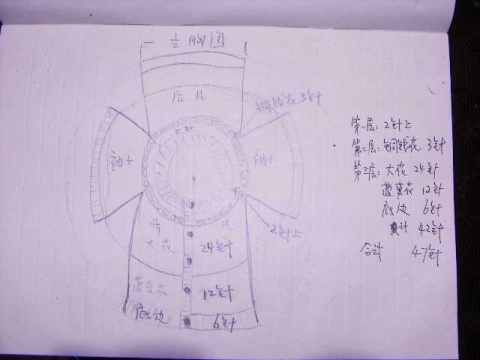 ½胸围
后片
铜钱花3针
袖
袖
前 片
大花 24针
2针上
菠萝花 12针
底边 6针
第一层: 2针上
第二层: 铜钱花 3针
第三层: 大花 24针
菠萝花 12针
底边 6针
累计 42针
合计 47针